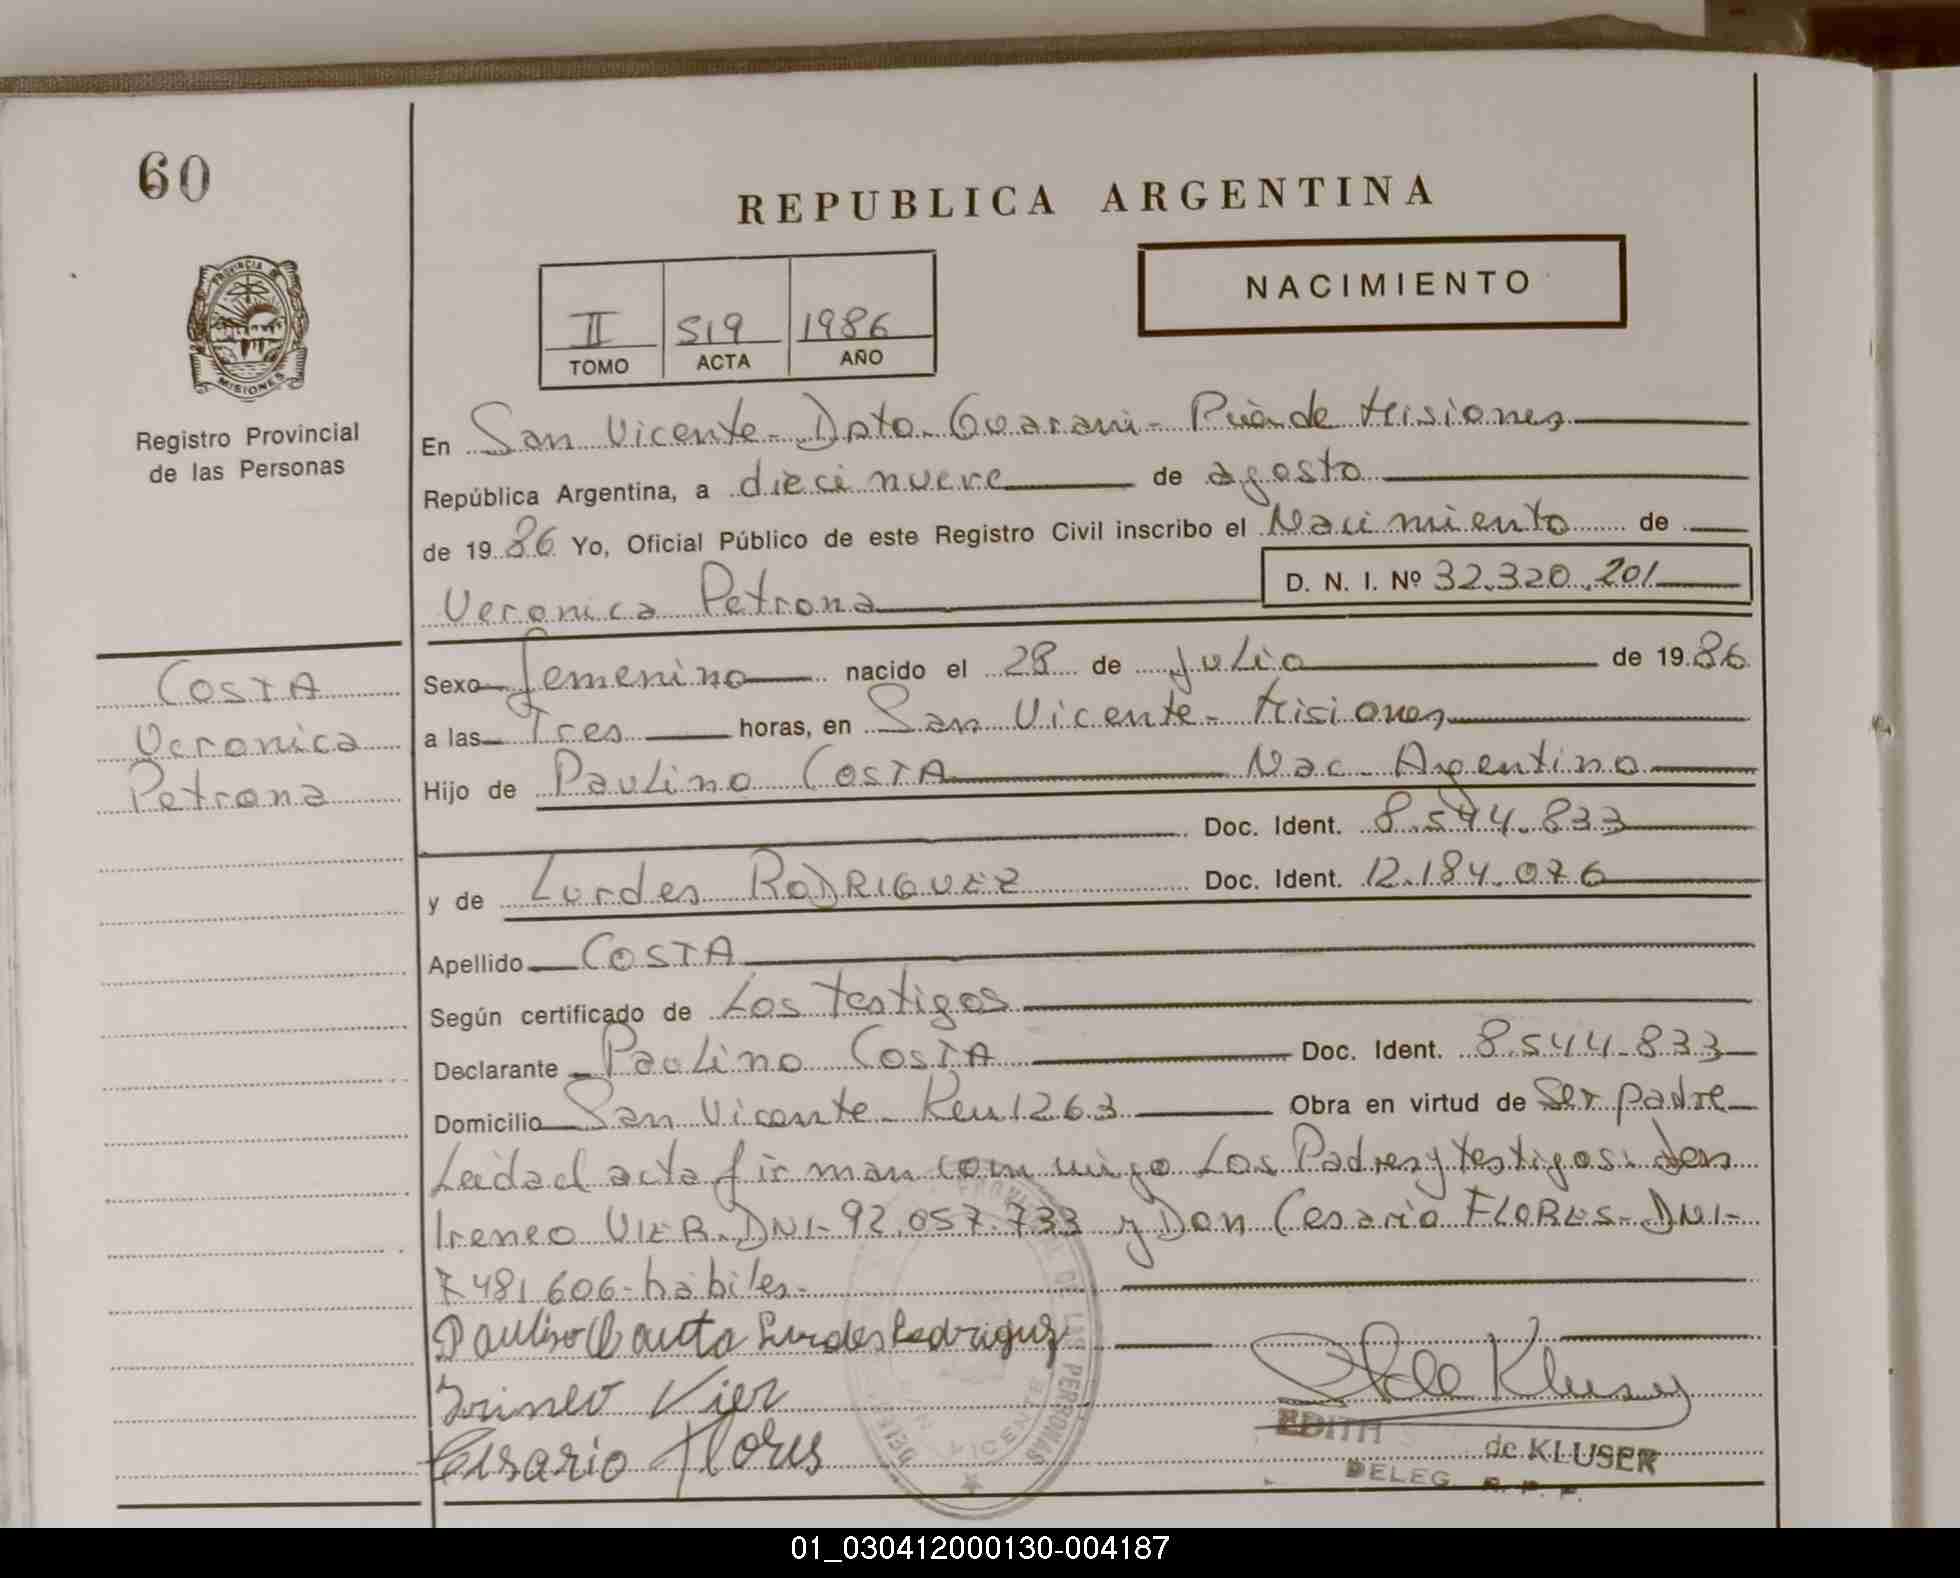 60
REPUBLICA ARGENTINA
PROVINCIA DE
MISIONES
NACIMIENTO
II 519 1986
TOMO ACTA AÑO
Registro Provincial
de las Personas
En San Vicente - Dpto. Guarani - Pcia de Misiones
República Argentina, a diecinueve de agosto
de 1986 Yo, Oficial Público de este Registro Civil inscribo el Nacimiento de
Veronica Petrona D. N. I. Nº 32.320.201
COSTA
Veronica
Petrona
Sexo femenino nacido el 28 de Julio de 1986
a las Tres horas, en San Vicente - Misiones
Hijo de Paulino COSTA Nac. Argentino
Doc. Ident. 8.544.833
y de Lurdes RODRIGUEZ Doc. Ident. 12.184.076
Apellido COSTA
Según certificado de Los testigos
Declarante Paulino COSTA Doc. Ident. 8.544.833
Domicilio San Vicente 1263 Obra en virtud de Ser padre
Leida el acta firman conmigo Los Padres y testigos: don
Ireneo VIER. DNI- 92.057.733 y Don Cesario FLORES- DNI-
7481.606- habiles-
Paulino Lurdes Rodriguez
Irineo Vier
Cesario Flores
Kluser
EDITH de KLUSER
DELEG R. P. P.
PROVINCIAL DE LAS PERSONAS
SAN VICENTE
01_030412000130-004187